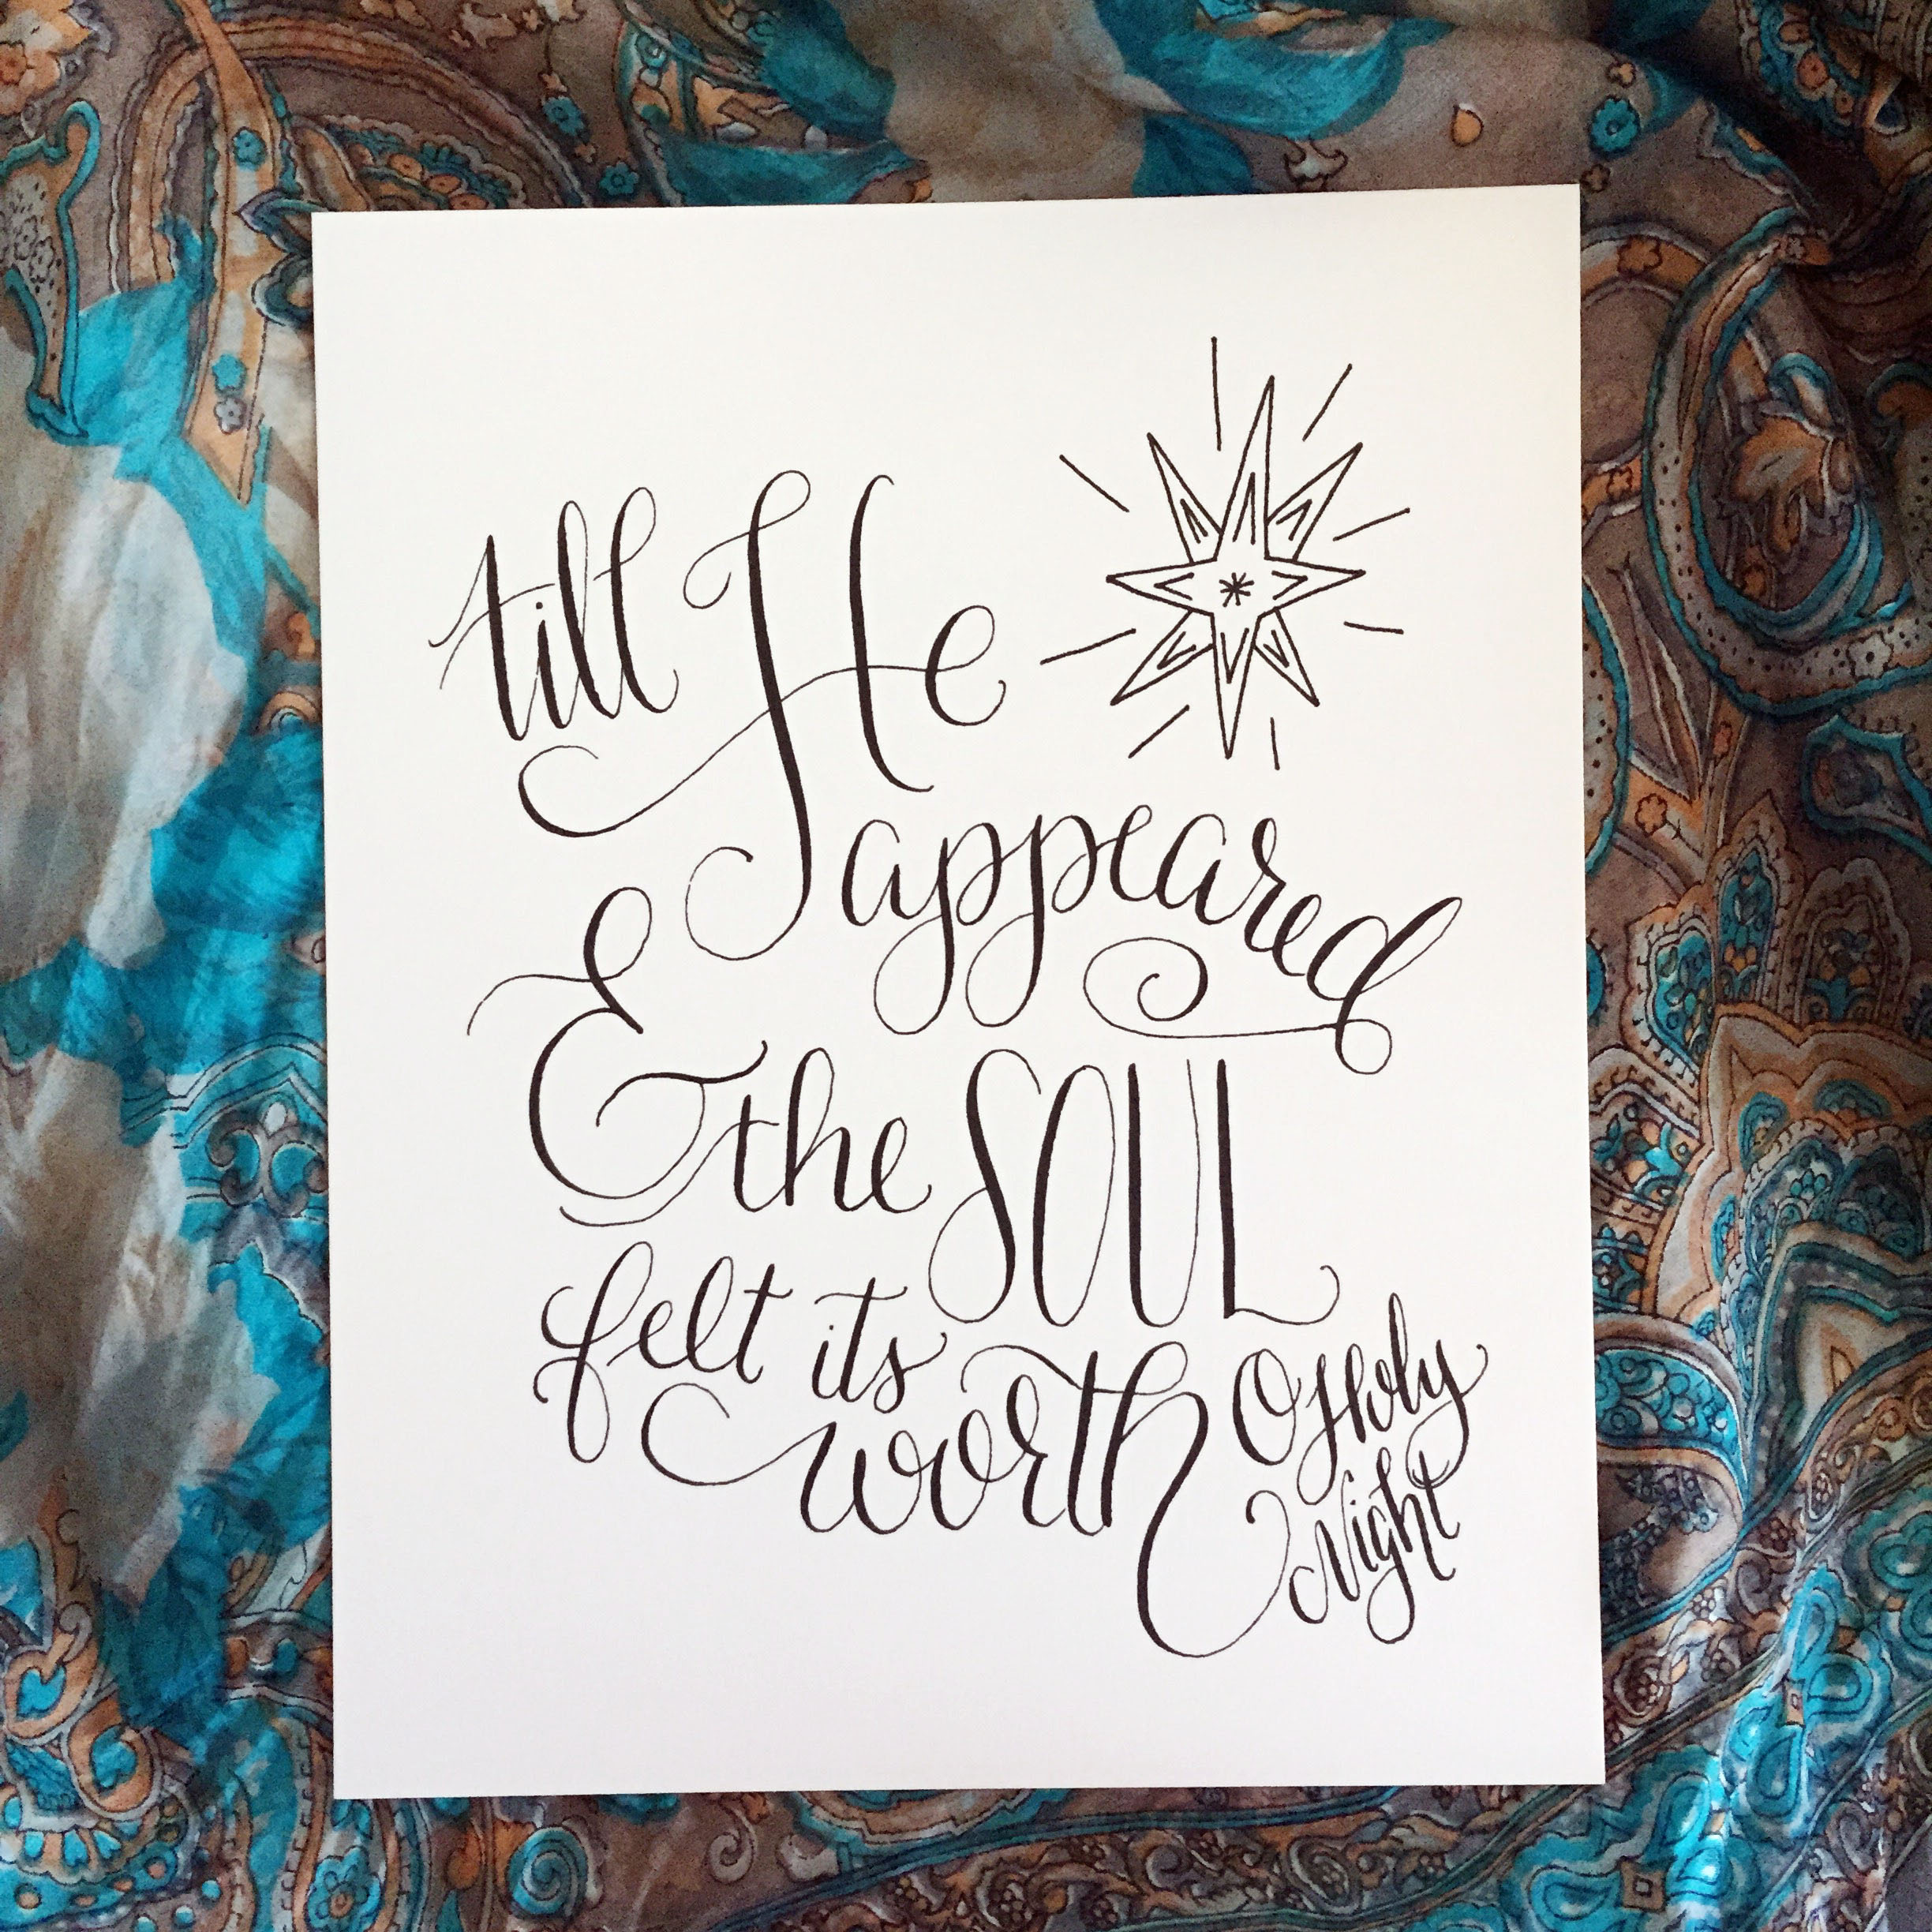 till He
appeared
& the SOUL
felt its
worth
O Holy
Night